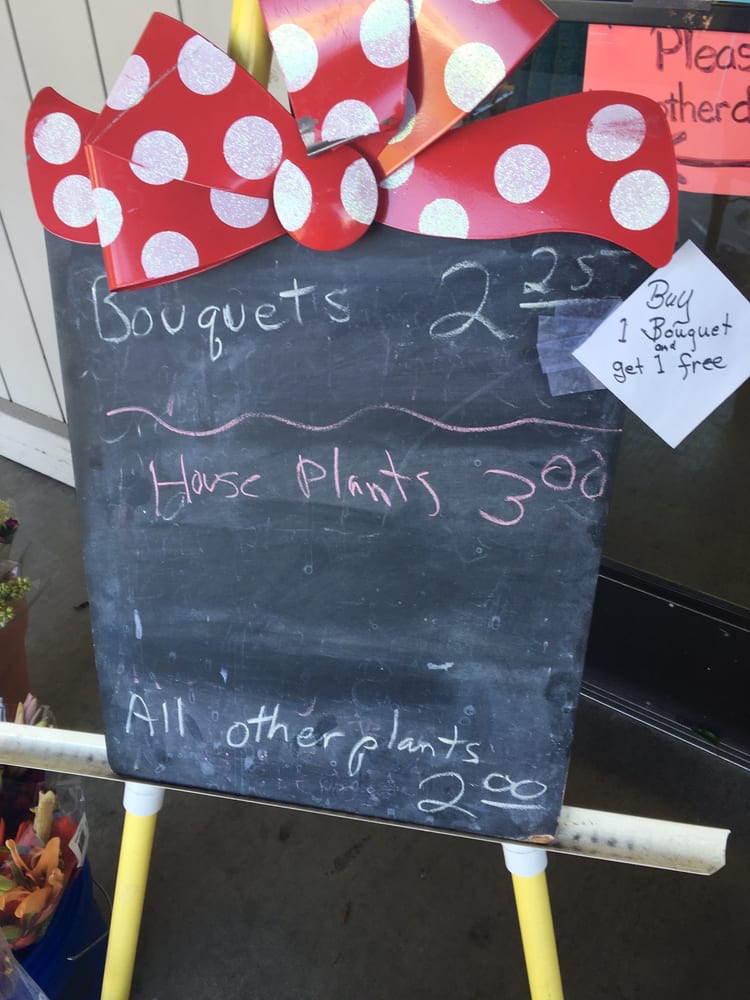 Pleas
otherd
Bouquets 2 25
Buy
1 Bouquet
and
get 1 free
House Plants 3 00
All other plants
2 00